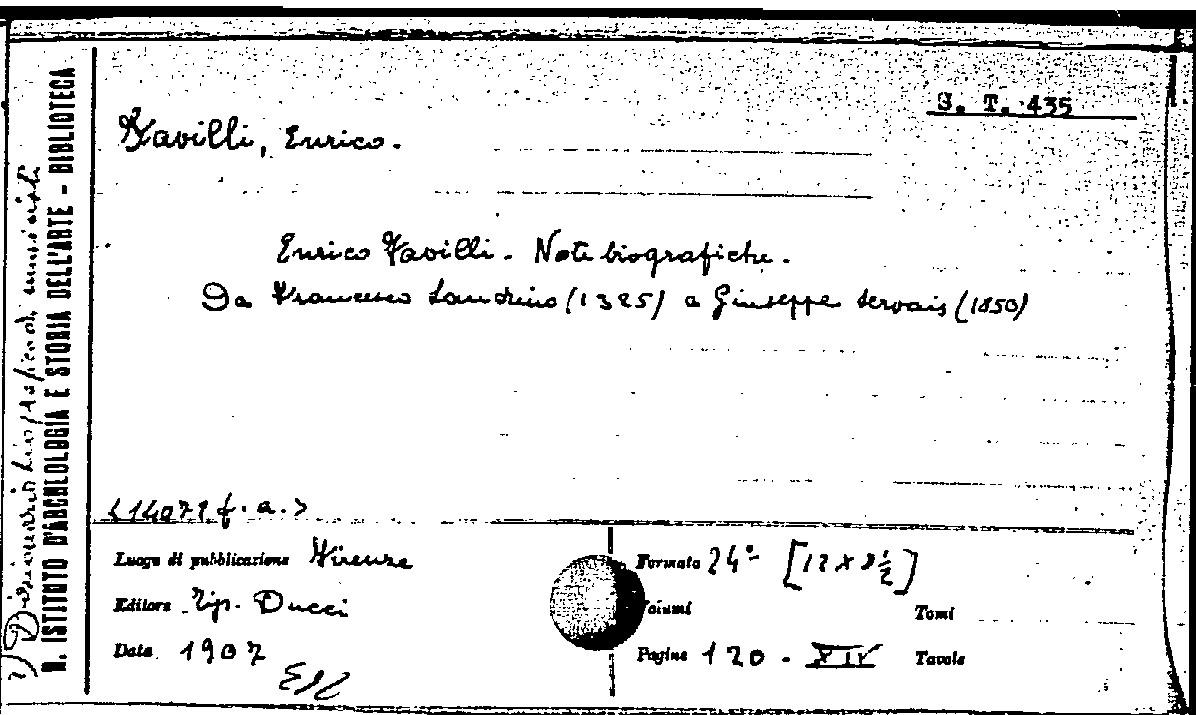 S. T. 435
Favilli, Enrico.
Enrico Favilli. Note biografiche.
Da Francesco Landino (1325) a Giuseppe Servais (1850)
<14071 f. a.>
Luogo di pubblicazione Firenze
Editore Tip. Ducci
Data 1907
Formato 24° [12 x 8½]
Volumi
Tomi
Pagine 120 - XIV
Tavole
R. ISTITUTO D'ARCHEOLOGIA E STORIA DELL'ARTE - BIBLIOTECA
Dizionario biografico di musicisti